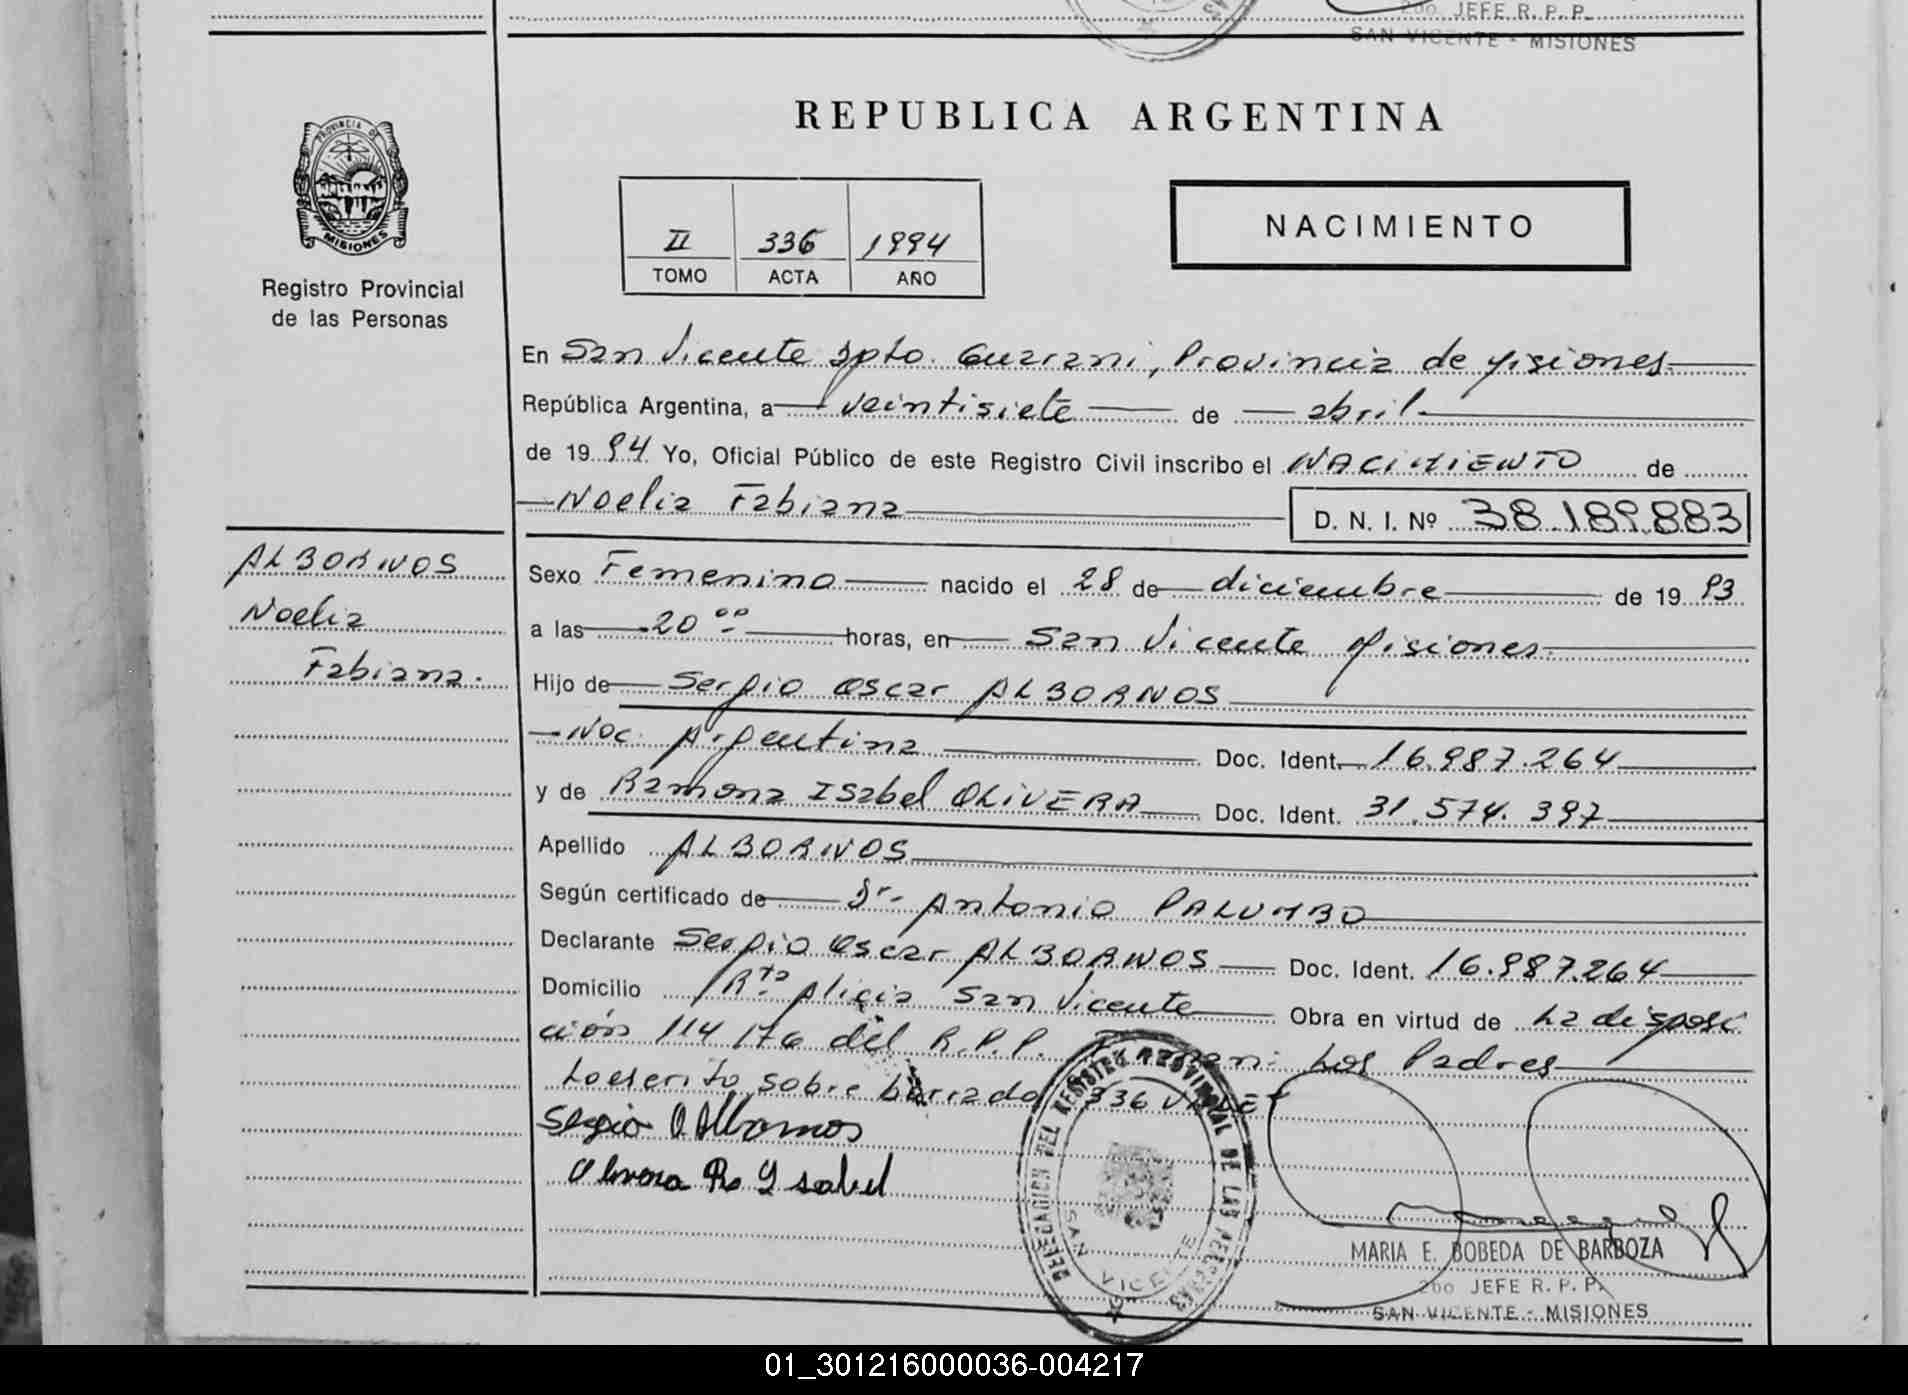 2do. JEFE R. P. P.
SAN VICENTE - MISIONES
REPUBLICA ARGENTINA
PROVINCIA DE
MISIONES
Registro Provincial
de las Personas
II 336 1994
TOMO ACTA AÑO
NACIMIENTO
En San Vicente Dpto. Guarani, Provincia de Misiones
República Argentina, a veintisiete de abril
de 1994 Yo, Oficial Público de este Registro Civil inscribo el NACIMIENTO de
Noelia Fabiana D. N. I. Nº 38.189.883
ALBORNOS
Noelia
Fabiana.
Sexo Femenino nacido el 28 de diciembre de 1993
a las 20 00 horas, en San Vicente Misiones
Hijo de Sergio Oscar ALBORNOS
Nac. Argentina Doc. Ident. 16.987.264
y de Ramona Isabel OLIVERA Doc. Ident. 31.574.397
Apellido ALBORNOS
Según certificado de Dr. Antonio PALUMBO
Declarante Sergio Oscar ALBORNOS Doc. Ident. 16.987.264
Domicilio Rta Alicia San Vicente Obra en virtud de La disposi
ción 114/76 del R.P.P. Firman: Los Padres
Lo escrito sobre borrado 336 VALE
Sergio O Albornos
Olivera R. Ysabel
DELEGACION DEL REGISTRO PROVINCIAL DE LAS PERSONAS
SAN VICENTE
MARIA E. BOBEDA DE BARBOZA
2do JEFE R. P. P.
SAN VICENTE - MISIONES
01_301216000036-004217